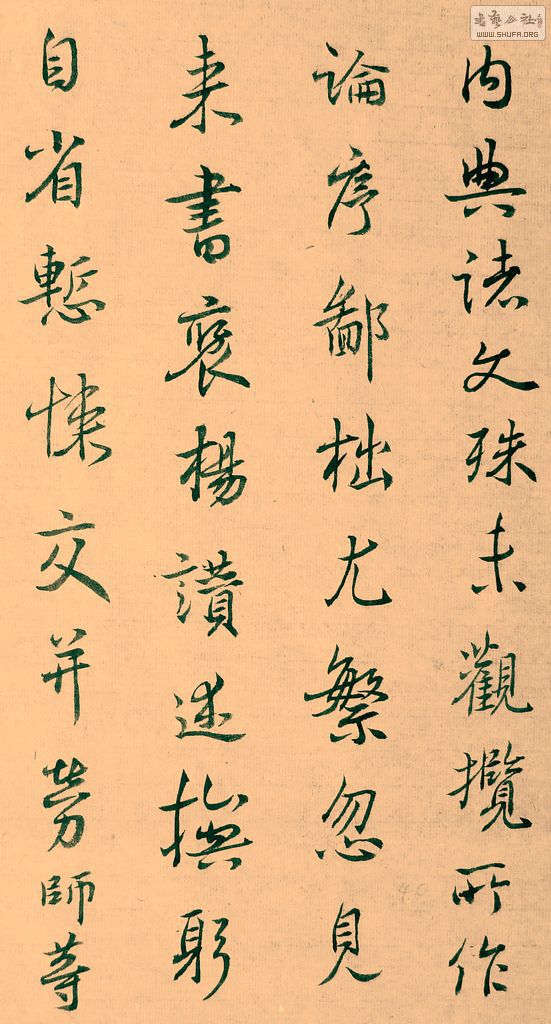 内典諸文殊未觀攬所作
論序鄙拙尤繁忽見
来書褒楊讚述撫躬
自省慙悚交并勞師等
書藝公社
WWW.SHUFA.ORG